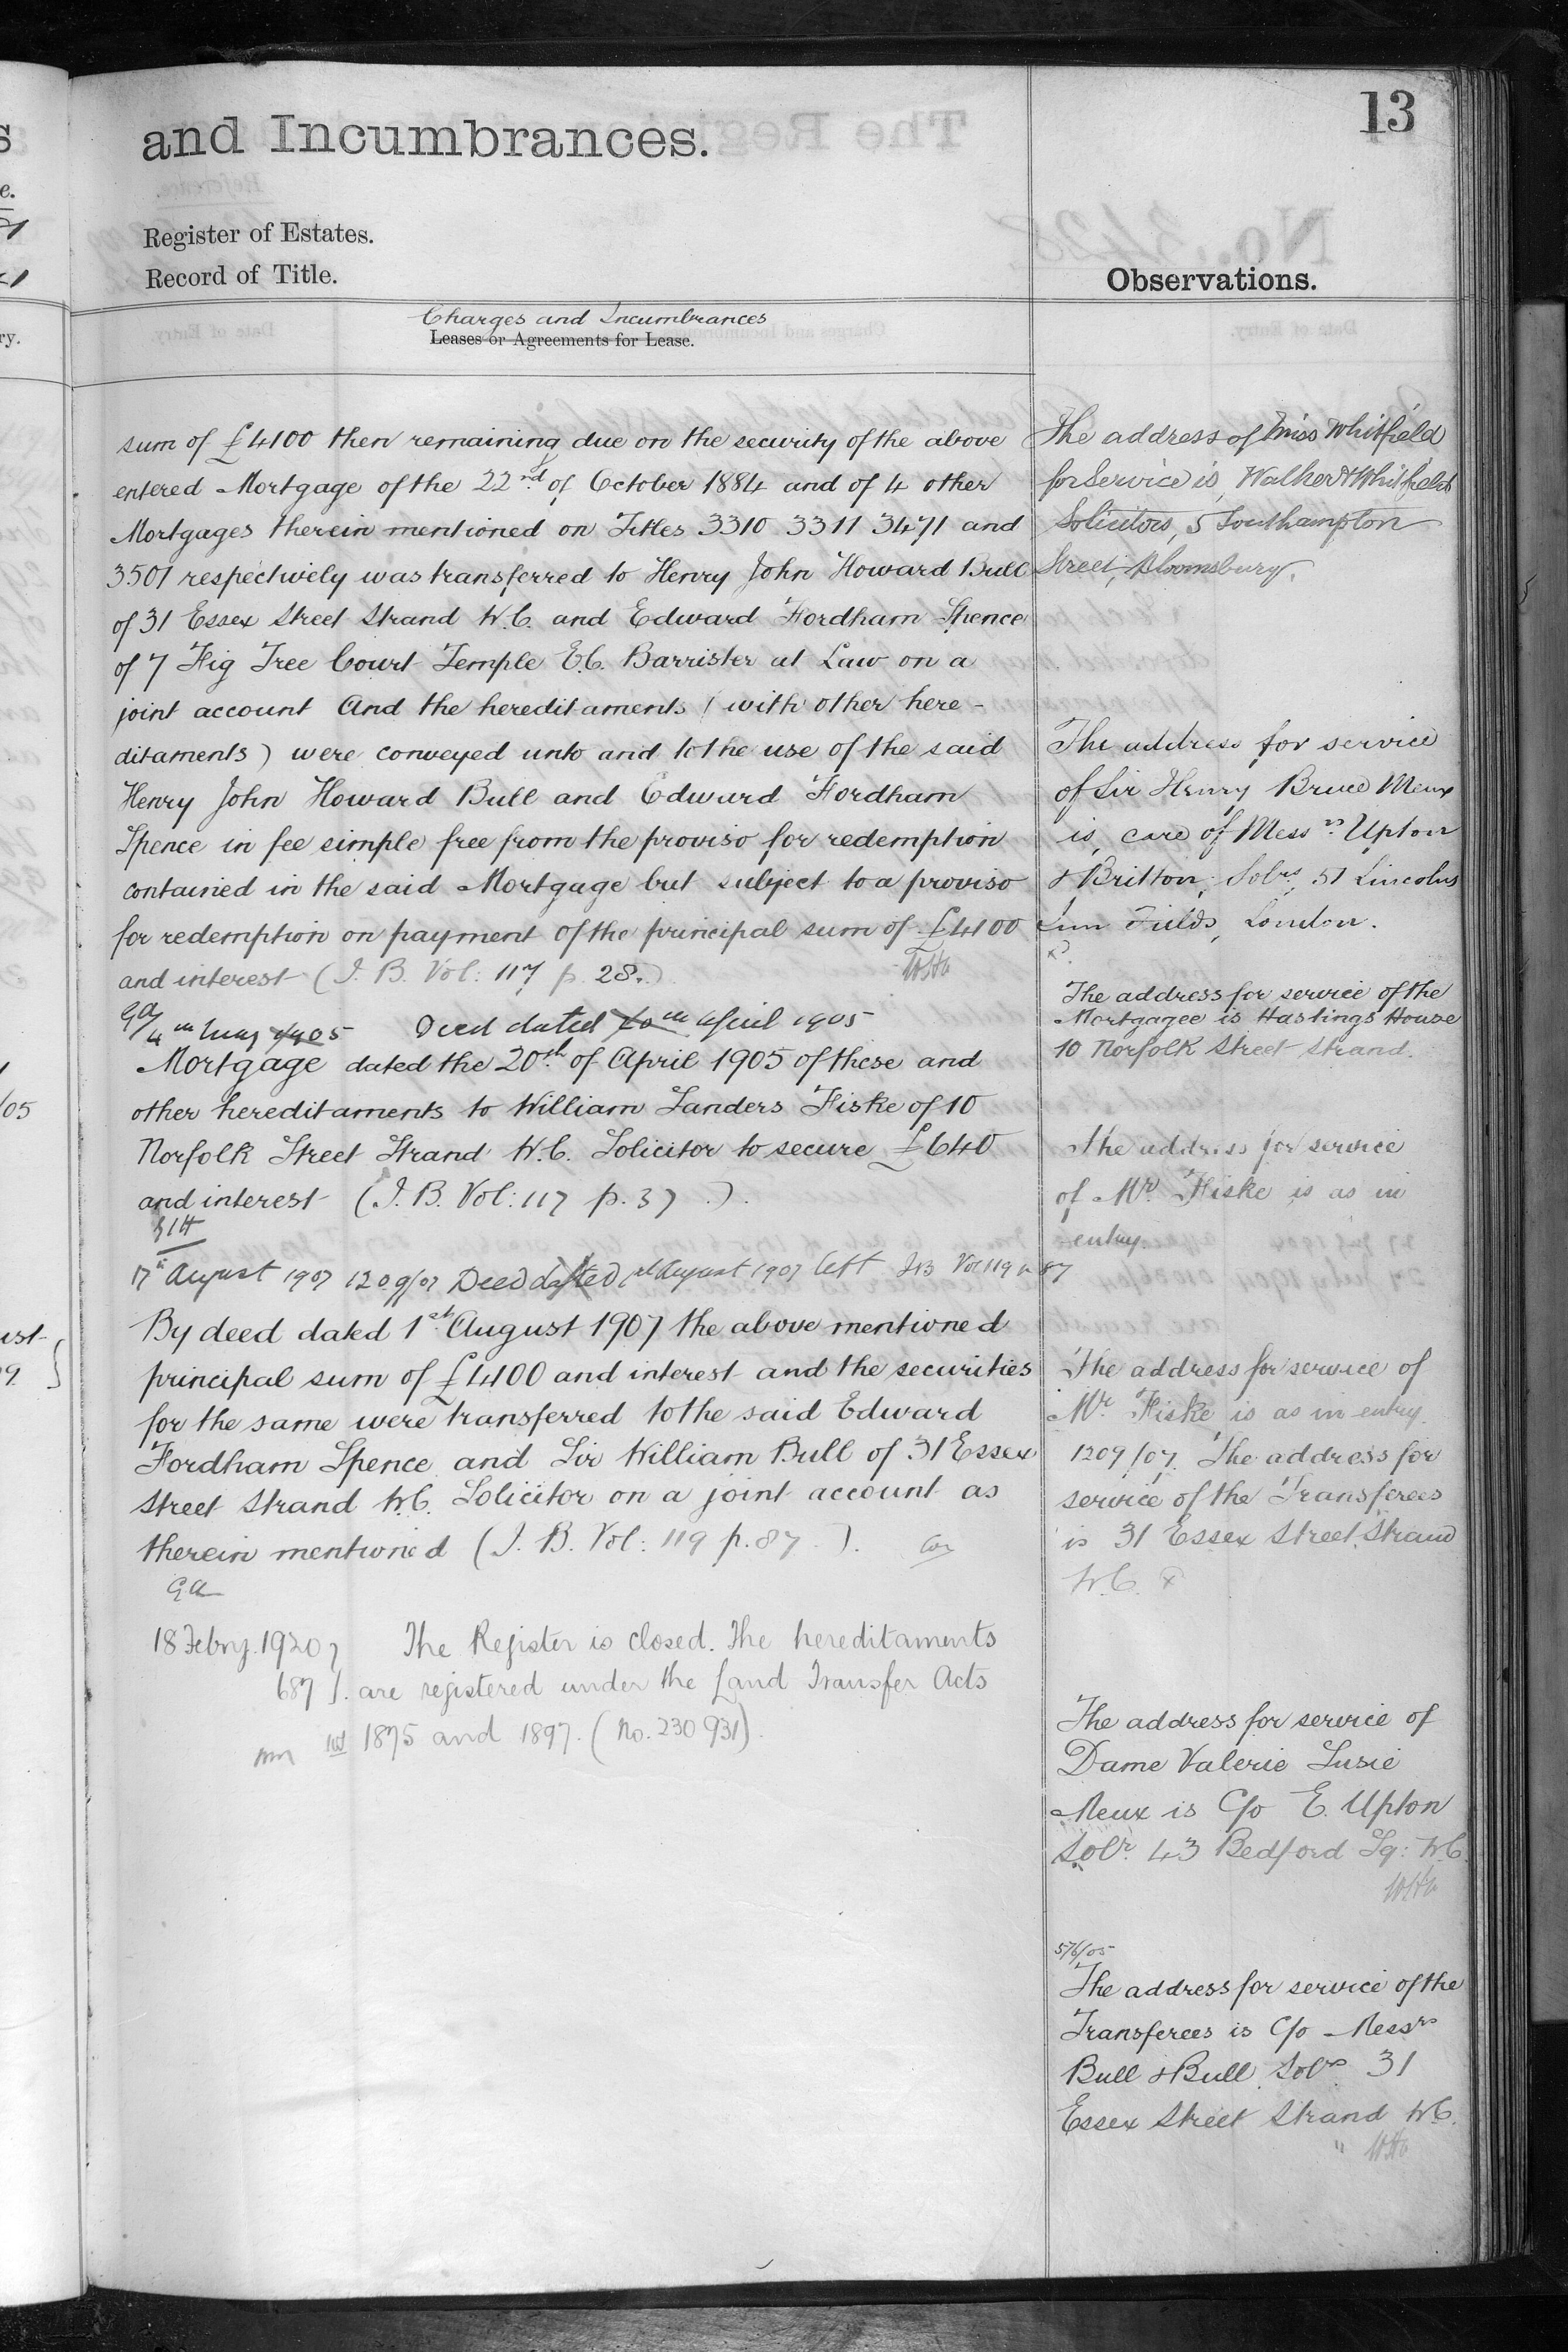 13
and Incumbrances.
Register of Estates.
Record of Title.
Observations.
Charges and Incumbrances
Leases or Agreements for Lease.
sum of £4100 then remaining due on the security of the above
entered Mortgage of the 22nd of October 1884 and of 4 other
Mortgages therein mentioned on Titles 3310 3311 3471 and
3501 respectively was transferred to Henry John Howard Bull
of 31 Essex Street Strand W.C. and Edward Fordham Spence
of 7 Fig Tree Court Temple E.C. Barrister at Law on a
joint account And the hereditaments (with other here-
ditaments) were conveyed unto and to the use of the said
Henry John Howard Bull and Edward Fordham
Spence in fee simple free from the proviso for redemption
contained in the said Mortgage but subject to a proviso
for redemption on payment of the principal sum of £4100
and interest (I. B. Vol: 117 p. 28.)
4th May 1905 Deed dated 20th April 1905
Mortgage dated the 20th of April 1905 of these and
other hereditaments to William Sanders Fiske of 10
Norfolk Street Strand W.C. Solicitor to secure £640
and interest (I. B. Vol: 117 p. 37 ).
17th August 1907 1209/07 Deed dated 1st August 1907 left IB Vol 119 p 87
By deed dated 1st August 1907 the above mentioned
principal sum of £4100 and interest and the securities
for the same were transferred to the said Edward
Fordham Spence and Sir William Bull of 31 Essex
Street Strand W.C. Solicitor on a joint account as
therein mentioned (I. B. Vol: 119 p. 87 ).
18 Febry. 1920 } The Register is closed. The hereditaments
687 } are registered under the Land Transfer Acts
1875 and 1897. (No. 230931).
The address of Miss Whitfield
for Service is, Walker & Whitfield
Solicitors, 5 Southampton
Street, Bloomsbury.
The address for service
of Sir Henry Bruce Meux
is, care of Messrs Upton
& Britton, Solrs, 51 Lincolns
Inn Fields, London.
The address for service of the
Mortgagee is Hastings House
10 Norfolk Street Strand.
The address for service
of Mr. Fiske is as in
entry.
The address for service of
Mr. Fiske is as in entry.
1209/07. The address for
service of the Transferees
is 31 Essex Street, Strand
W.C.
The address for service of
Dame Valerie Susie
Meux is C/o E. Upton
Solr. 43 Bedford Sq: W.C.
576/05
The address for service of the
Transferees is C/o Messrs
Bull & Bull, Solrs 31
Essex Street Strand W.C.